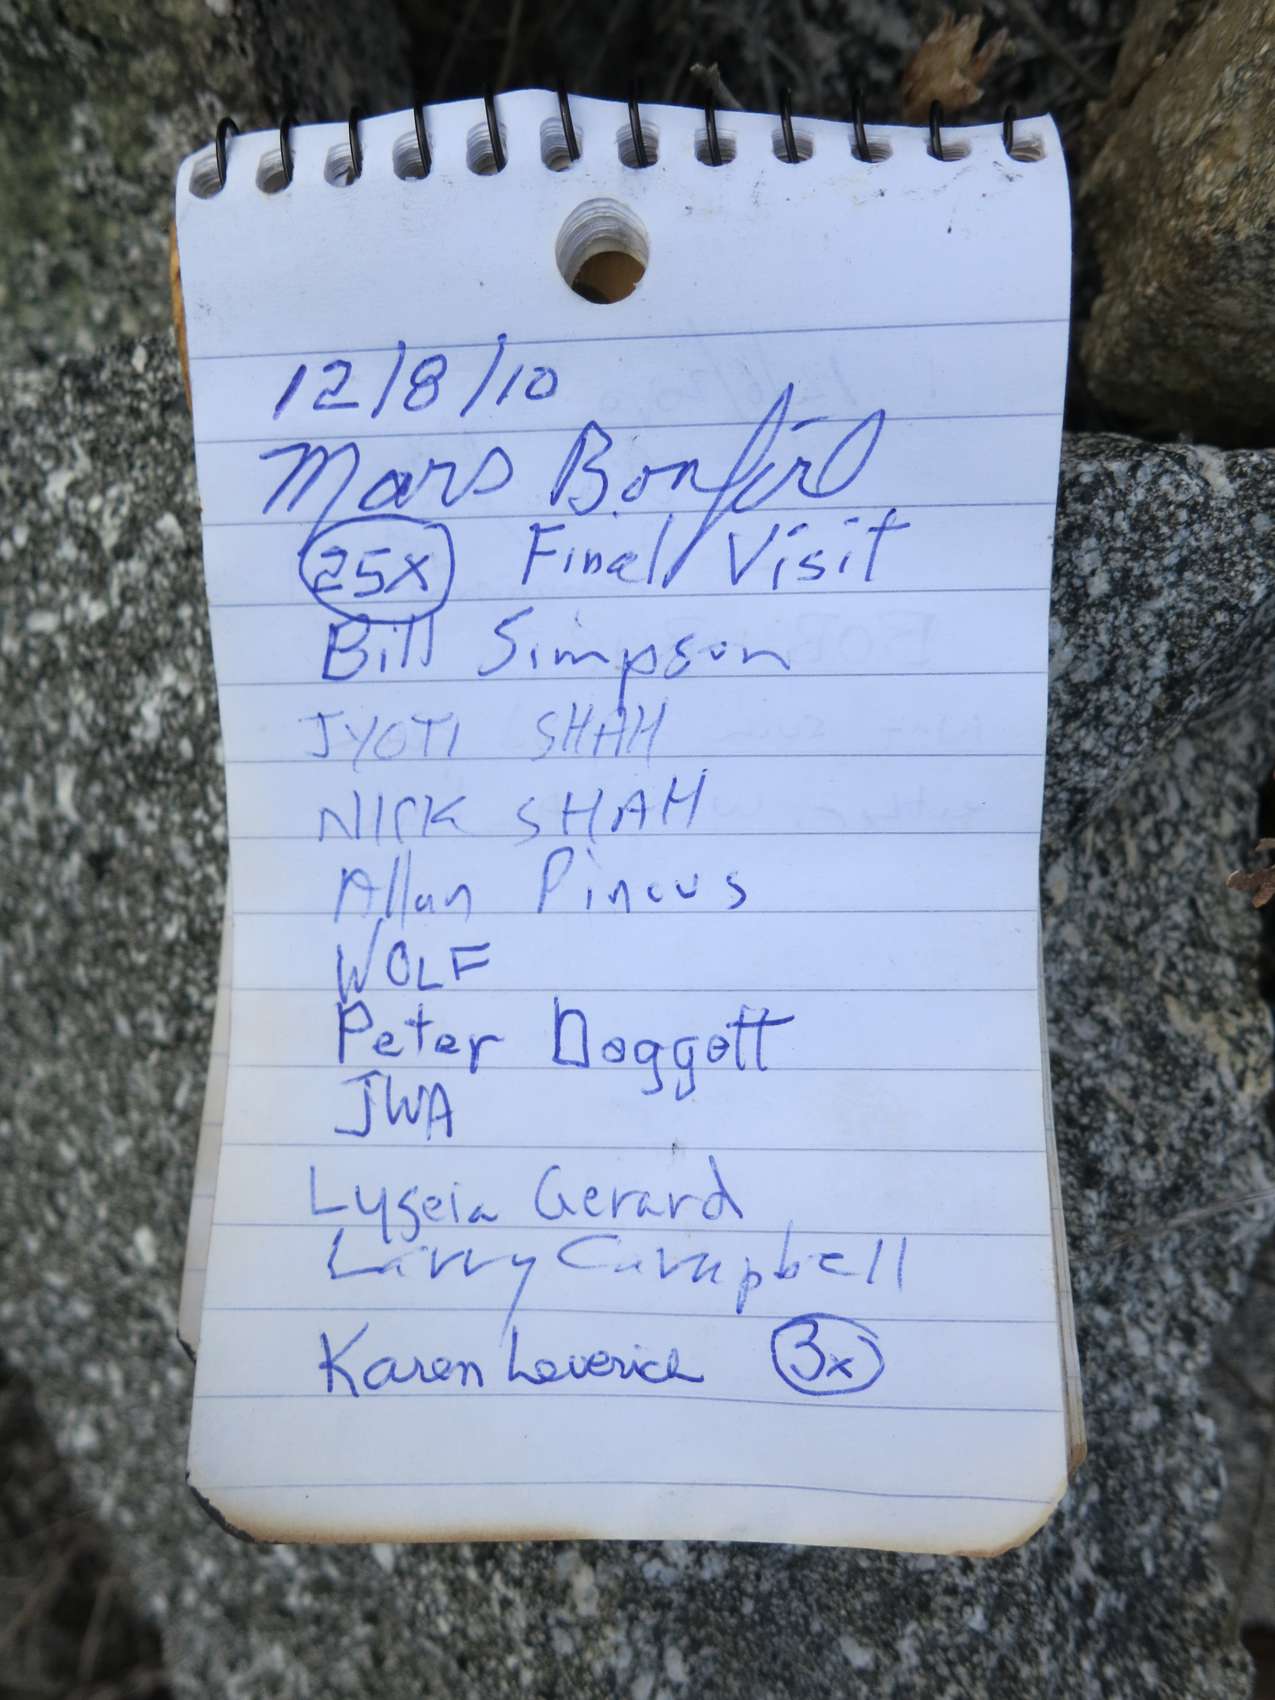 12/8/10
Mars Bonfire
25x Final Visit
Bill Simpson
JYOTI SHAH
NICK SHAH
Allan Pincus
WOLF
Peter Doggett
JWA
Lygeia Gerard
Larry Campbell
Karen Leverich 3x